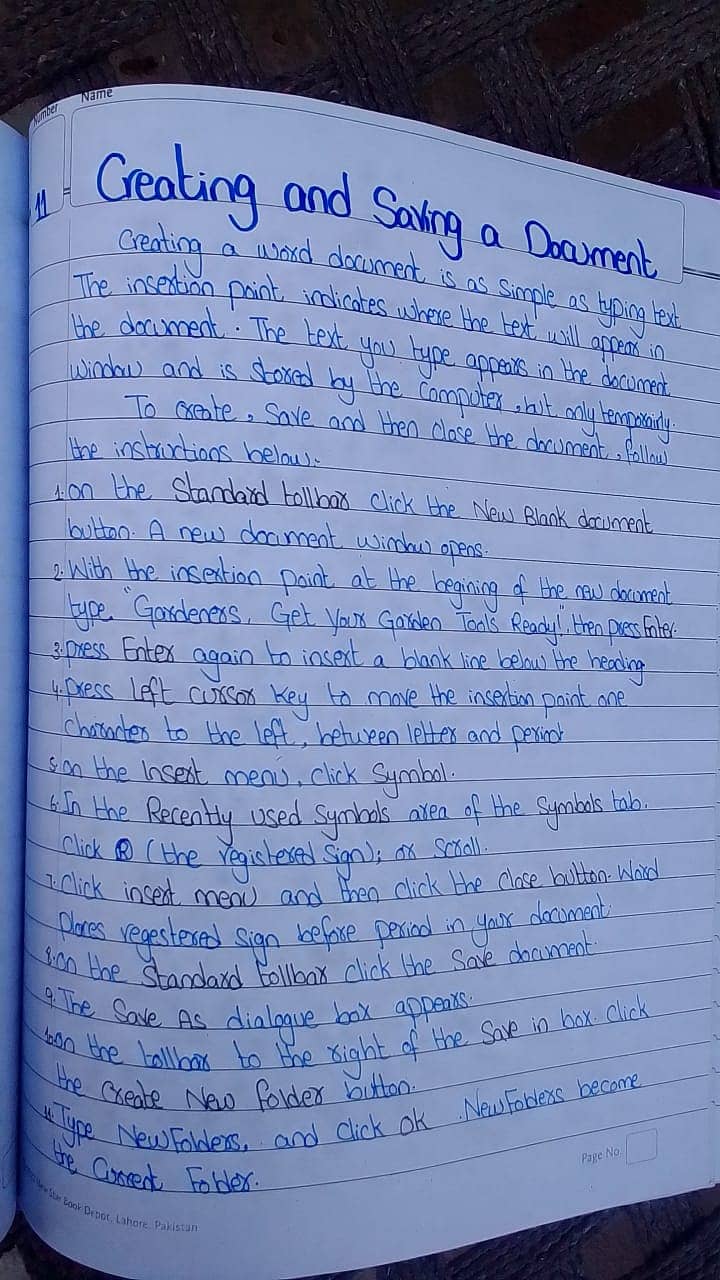 Number
Name
11
Creating and Saving a Document
Creating a word document is as simple as typing text
The insertion point indicates where the text will appear in
the document. The text you type appears in the document
window and is stored by the computer, but only temporarily.
To create, save and then close the document, follow
the instructions below:-
1. on the Standard tollbar click the New Blank document
button. A new document window opens.
2. With the insertion point at the begining of the new document
type. "Gardeners, Get Your Garden Tools Ready!", then press Enter.
3. press Enter again to insert a blank line below the heading
4. press left cursor key to move the insertion point one
character to the left, between letter and period
5. on the Insert menu, click Symbol.
6. In the Recently used Symbols area of the Symbols tab.
Click ® (the registered Sign); or Scroll.
7. Click insert menu and then click the Close button. Word
places regestered sign before period in your document.
8. on the Standard tollbar click the Save document.
9. The Save As dialogue box appears.
10. on the tollbar to the right of the Save in box. Click
the Create New folder button.
11. Type NewFolders, and click ok. NewFolders become
the Current Folder.
Page No.
Book Depot, Lahore, Pakistan